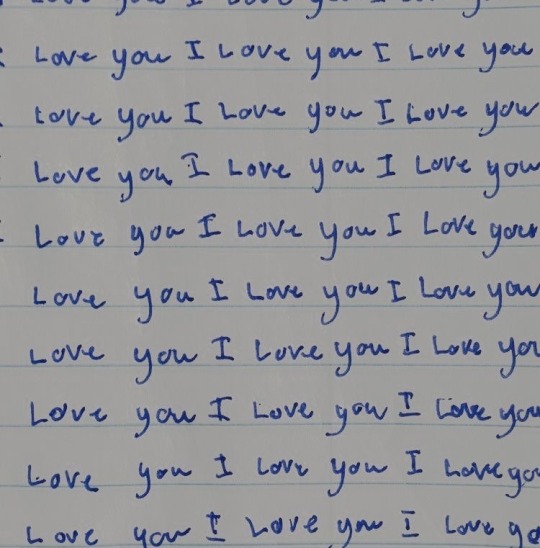 Love you I Love you I Love you
Love you I Love you I Love you
Love you I Love you I Love you
Love you I Love you I Love your
Love you I Love you I Love you
Love you I Love you I Love you
Love you I Love you I Love you
Love you I Love you I Love you
Love you I Love you I Love